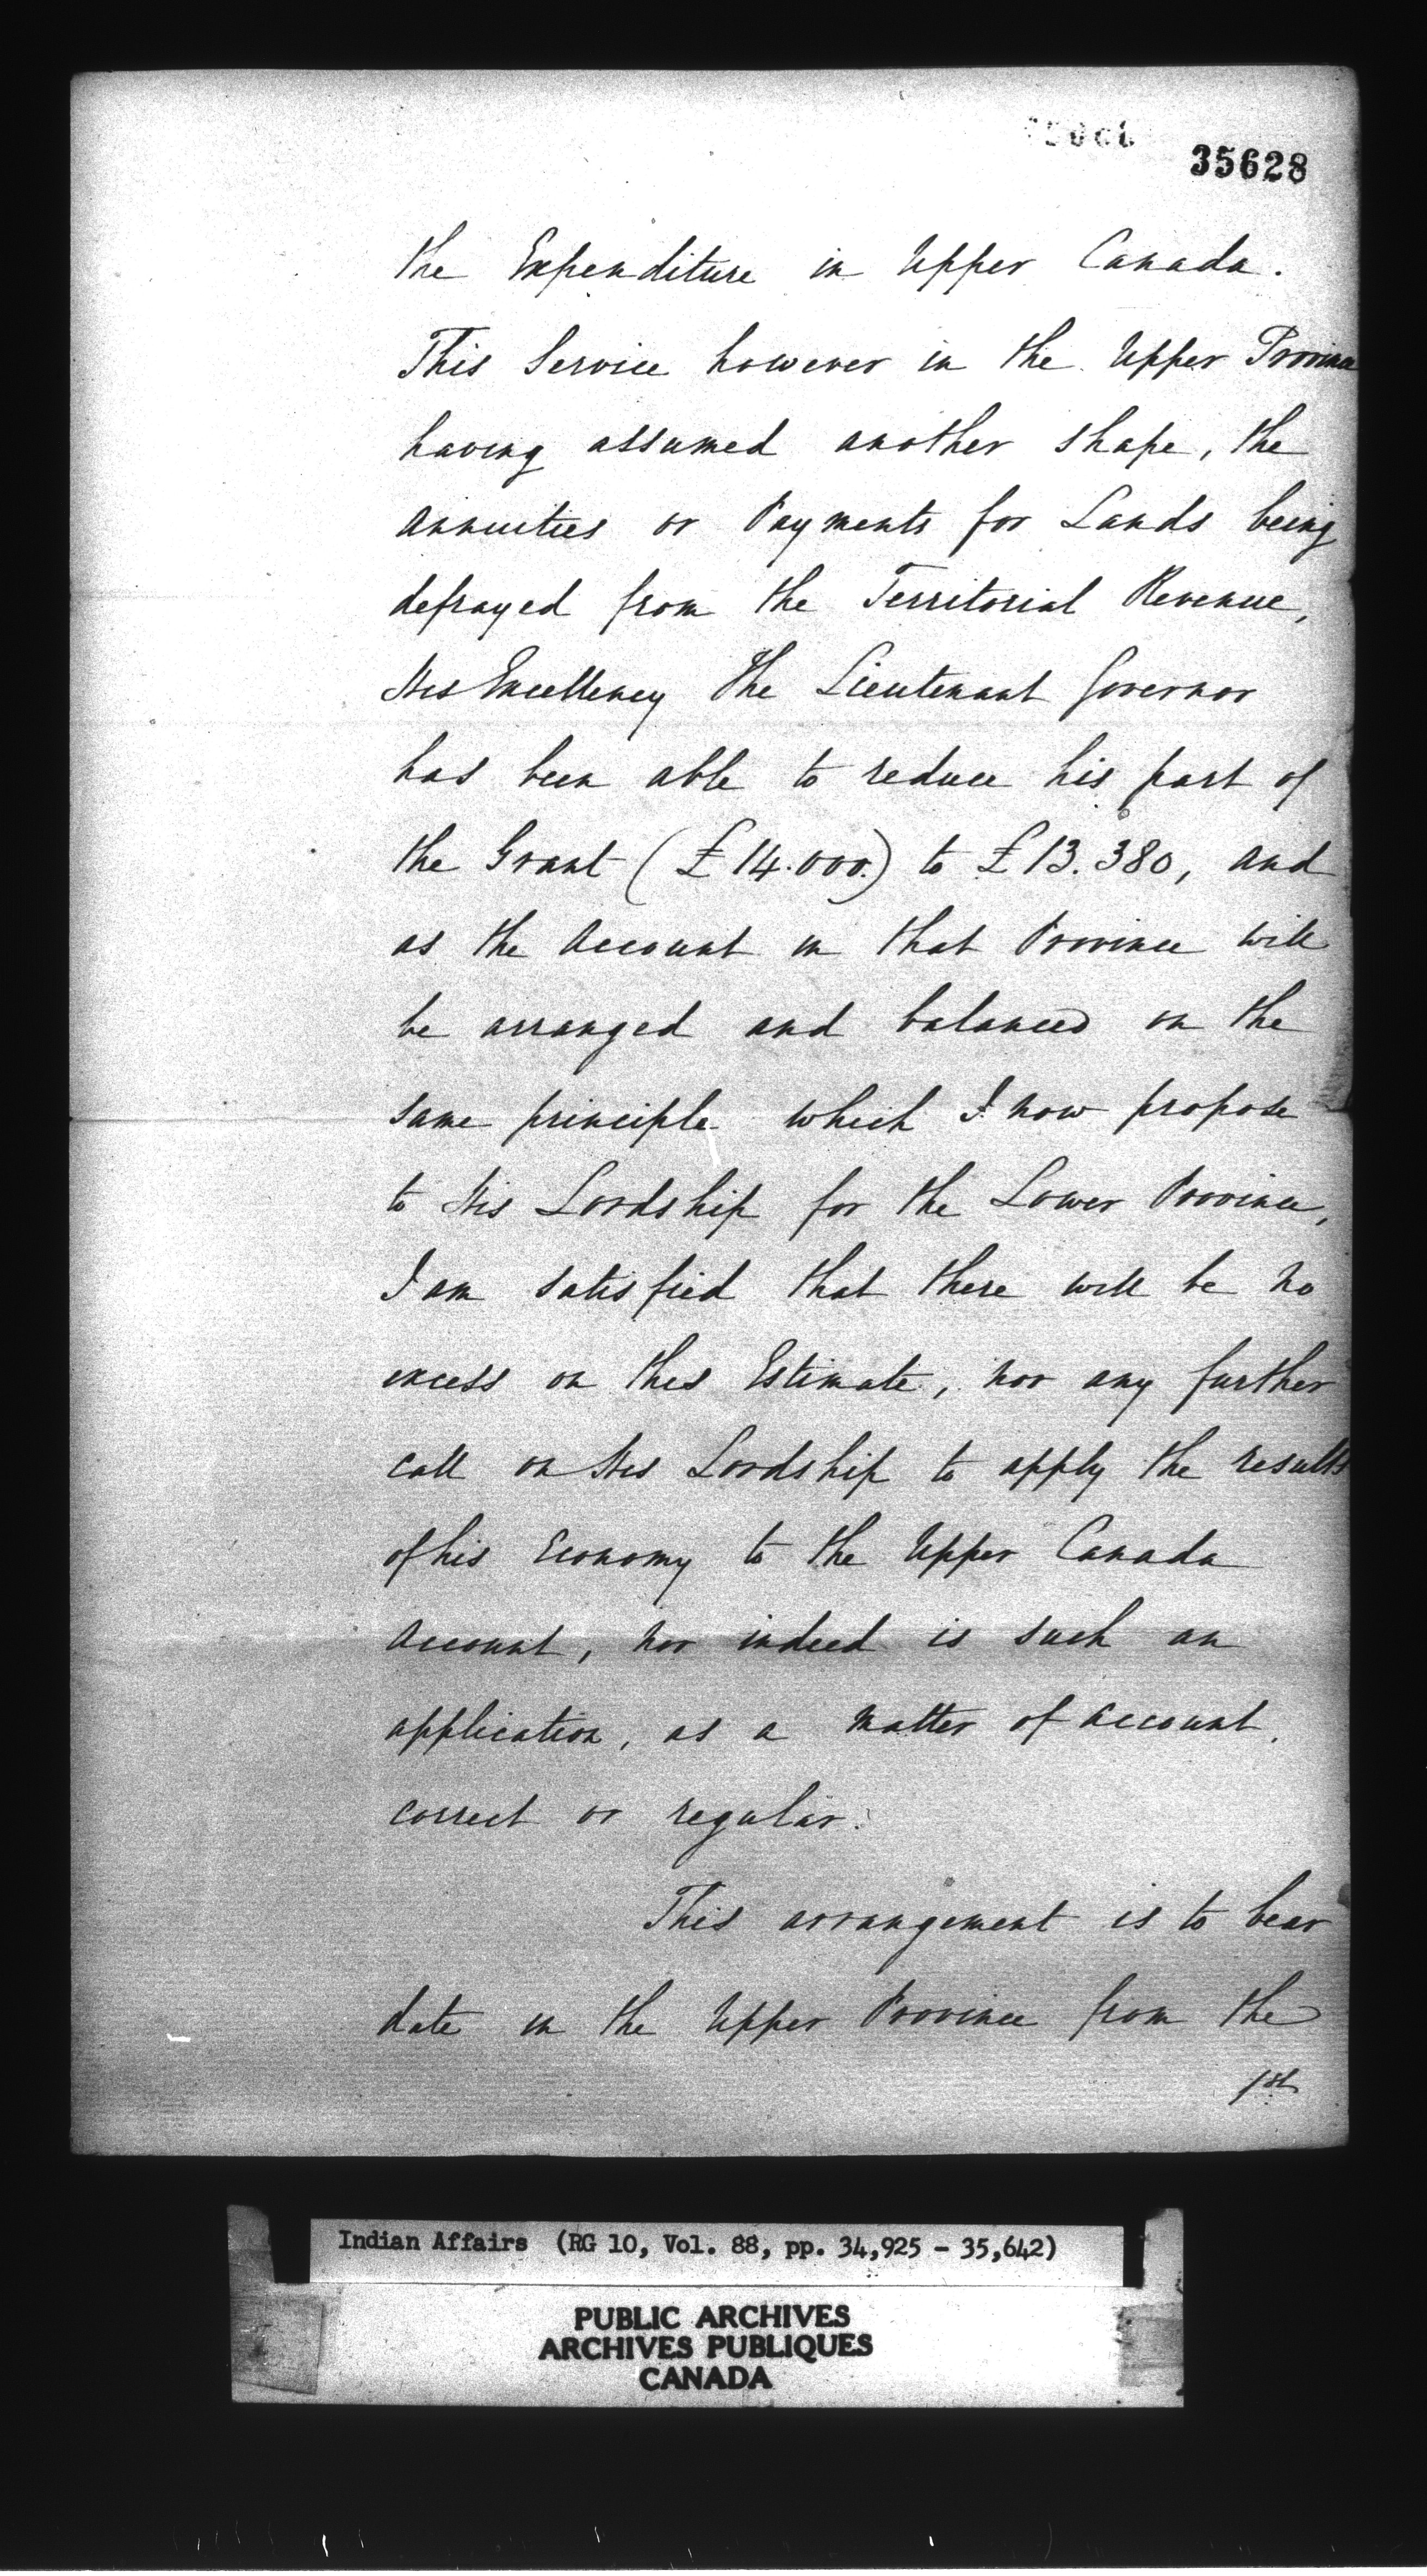 35628
the Expenditure in Upper Canada.
This Service however in the Upper Province
having assumed another shape, the
annuities or Payments for Lands being
defrayed from the Territorial Revenue,
His Excellency The Lieutenant Governor
has been able to reduce his part of
the Grant (£14.000.) to £13.380, and
as the Account in that Province will
be arranged and balanced on the
same principle which I now propose
to His Lordship for the Lower Province,
I am satisfied that there will be no
excess on this Estimate, nor any further
call on His Lordship to apply the results
of his Economy to the Upper Canada
Account, nor indeed is such an
application, as a matter of account,
correct or regular.
This arrangement is to bear
date in the Upper Province from the
1st
Indian Affairs (RG 10, Vol. 88, pp. 34,925 - 35,642)
PUBLIC ARCHIVES
ARCHIVES PUBLIQUES
CANADA